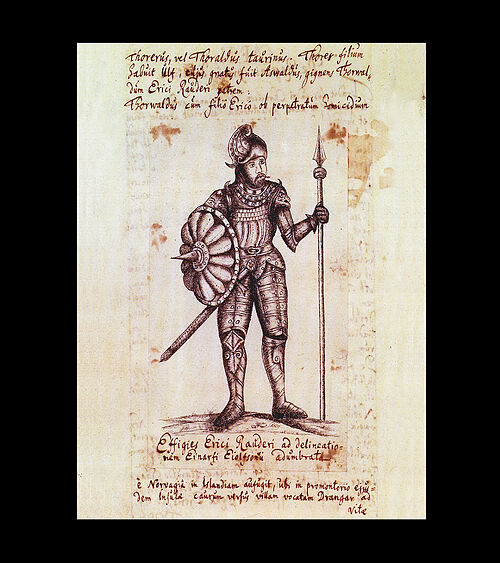 Thorerus, vel Thoraldus taurinus. Thores filium
habuit Ulf, cujus gnatus fuit Aswaldus, gignens Thorwal,
dum Erici Rauderi patrem:
Thorwaldus cum filio Erico ob perpetratum homicidium
Effigies Erici Rauderi ad delineatio-
nem Einarfi Eiolfsonii adumbrata
è Norvagia in Islandiam aufugit, ubi in promontorio ejus=
dem Insulæ caurum versus villam vocatam Drangar ad
vitæ